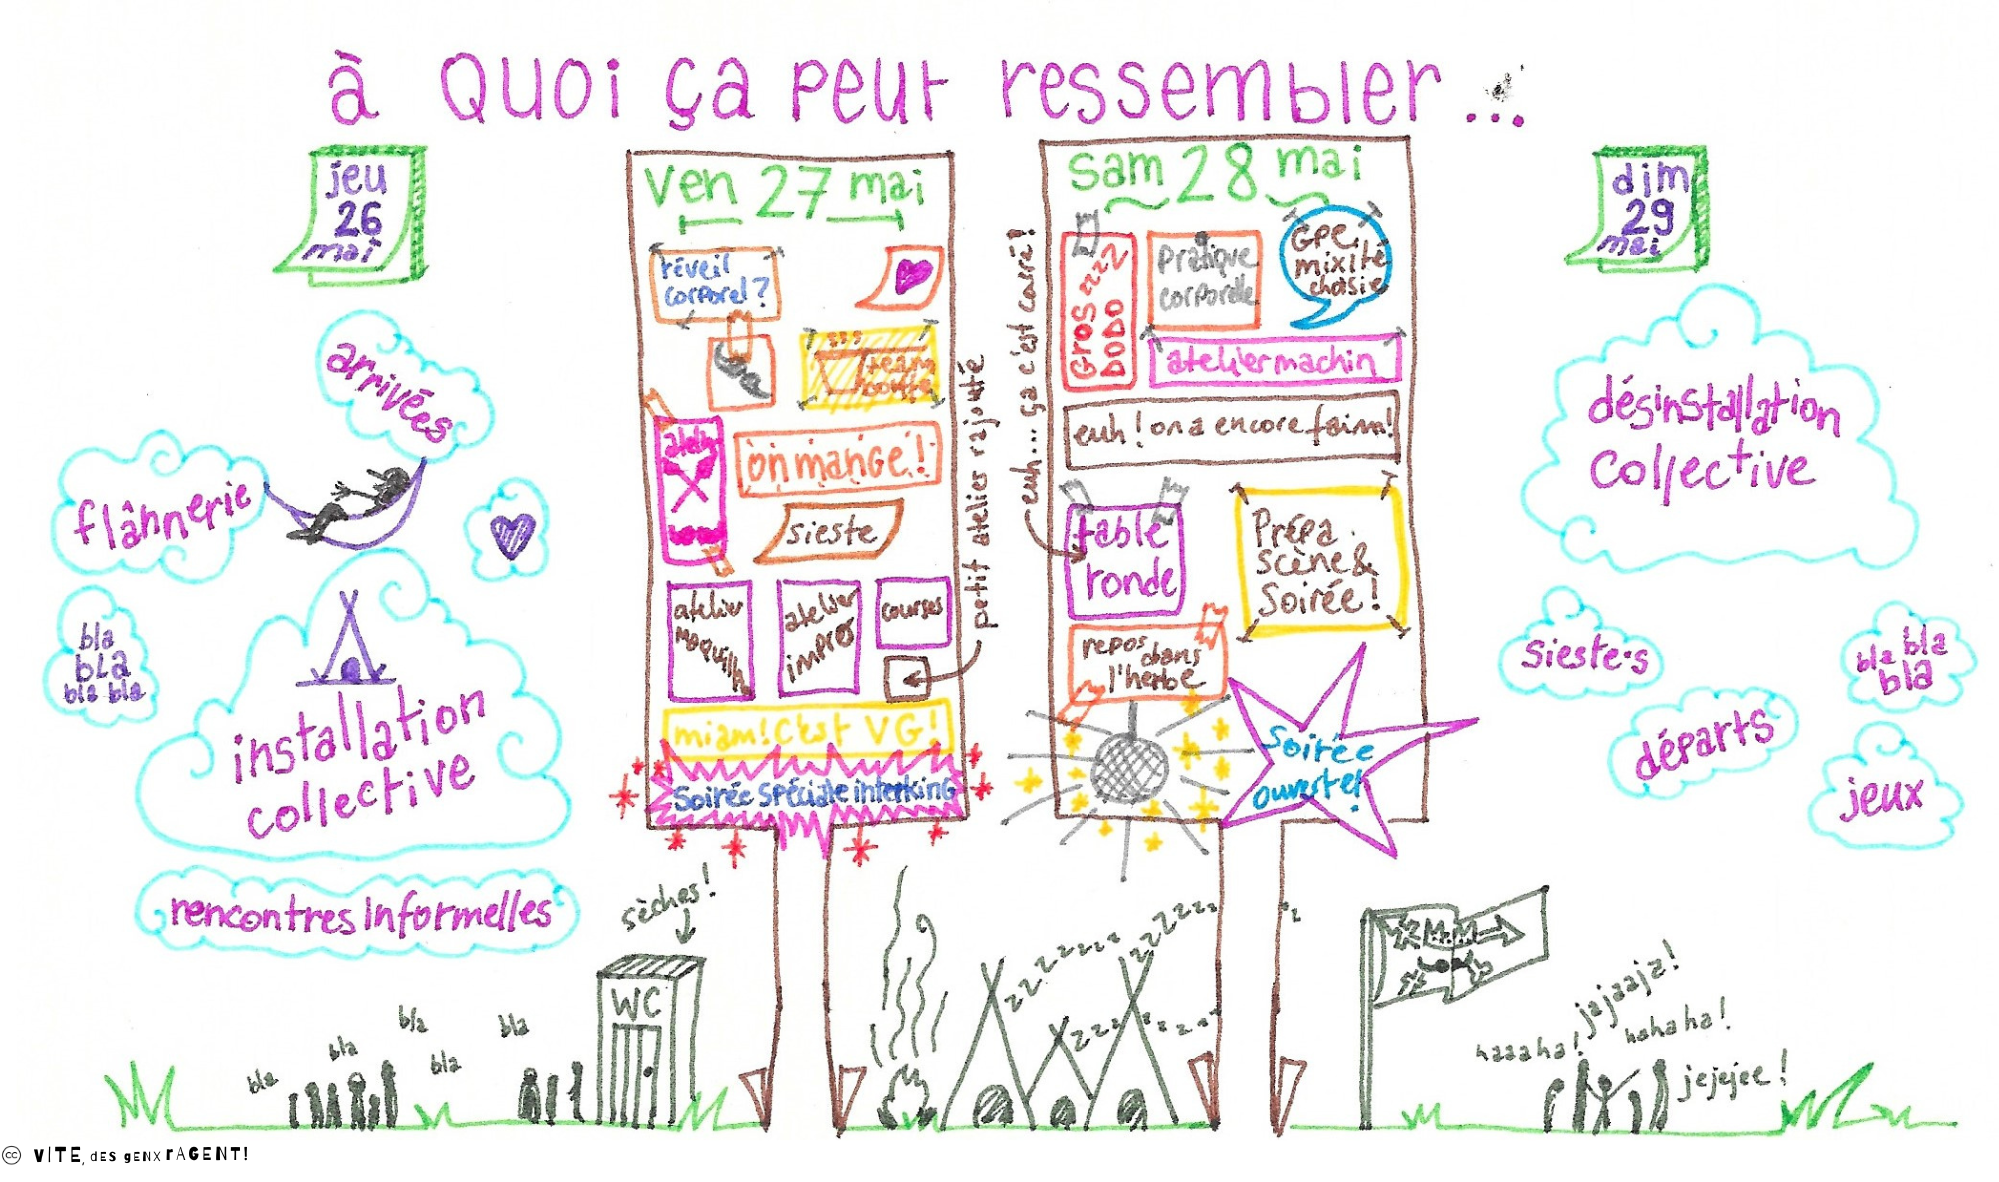 à Quoi ça peut ressembler...
jeu
26
mai
arrivées
flânnerie
bla
bla
bla bla
installation
collective
rencontres informelles
ven 27 mai
réveil
corporel ?
team
conte
on mange !
sieste
atelier
maquill
atelier
impro
courses
petit atelier rajouté
miam! C'est VG!
Soirée spéciale interking
sam 28 mai
GROS
DODO
zzz
pratique
corporelle
GPE.
mixité
choisie
atelier machin
euh ! on a encore faim !
euh... ça c'est carré !
table
ronde
Prépa.
scène &
Soirée !
repos dans
l'herbe
Soirée
ouverte !
dim
29
mai
désinstallation
collective
siestes
bla bla
bla
départs
jeux
sèches !
WC
bla
bla
bla
bla
bla
haaaha !
jajaaja !
hahaha !
jejejee !
VITE, DES GENX RAGENT!